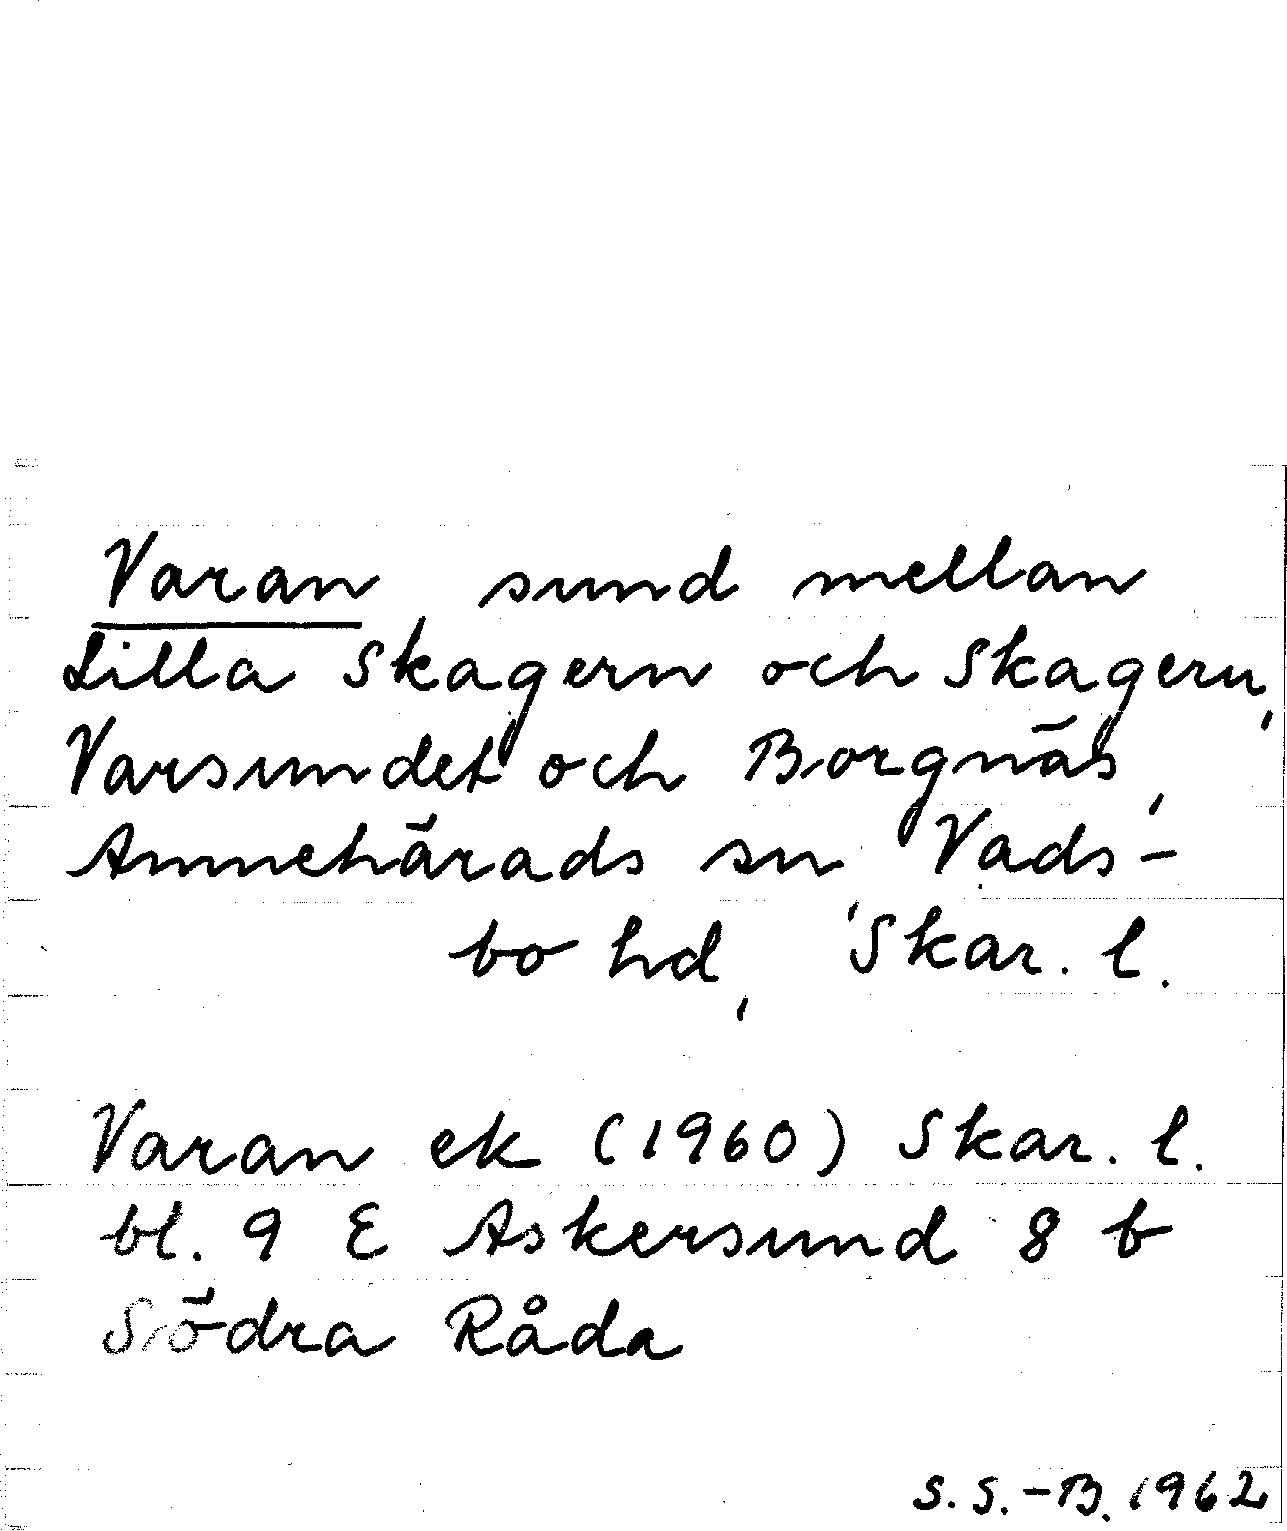 Varan sund mellan
Lilla Skagern och Skagern,
Varsundet och Borgnäs,
Amnehärads sn, Vads-
bo hd, Skar. l.
Varan ek (1960) Skar. l.
bl. 9 E Askersund 8 b
Södra Råda
S. S.-B. 1962